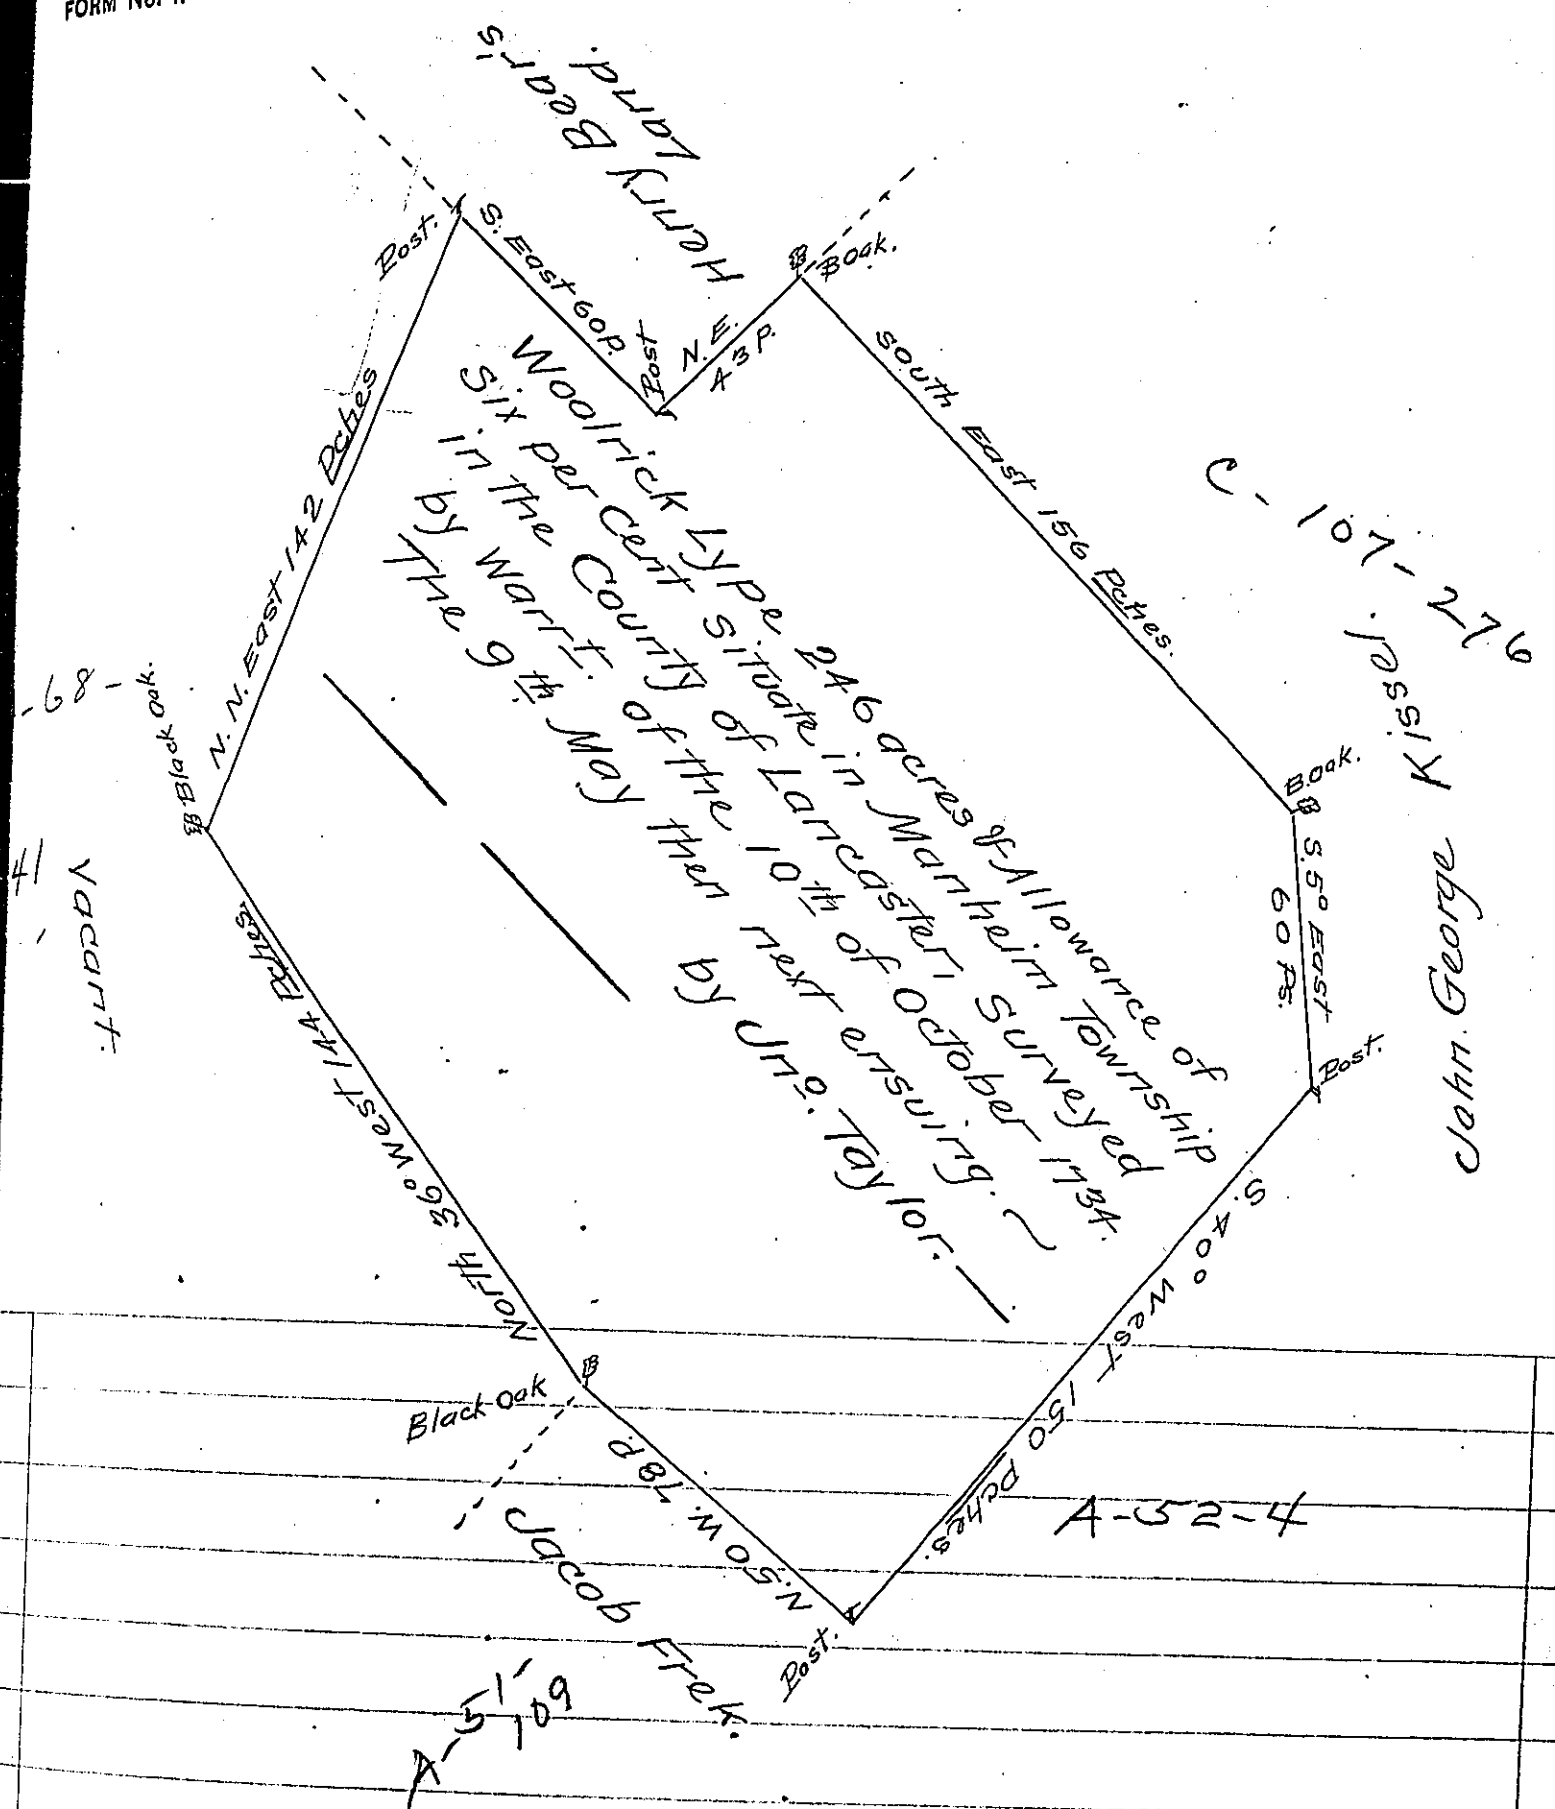 FORM No. 1.
Henry Bear's
Land.
Post.
S. East 60 p.
Post
N.E.
43 P.
B Oak.
South East 156 Pches.
C-107-276
John George Kissel.
B. Oak.
S. 5° East
60 Ps.
Post.
S. 40° West 150 pches.
A-52-4
Post.
N. 50 W. 78 P
Jacob Frek.
Black Oak
North 36° West 144 Pches.
Vacant.
Black Oak.
N. N. East 142 Pches
Woolrick Lype 246 acres & Allowance of
Six per Cent Situate in Manheim Township
in the County of Lancaster Surveyed
by Warrt. of the 10th of October 1734.
The 9th May then next ensuing.
by Jno. Taylor.